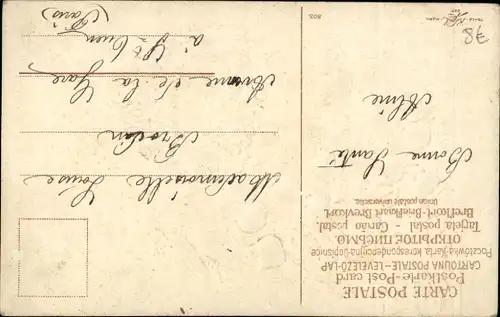 CARTE POSTALE
Postkarte-Post card
CARTOLINA POSTALE-LEVELEZŐ-LAP
Pocztówka-Karta korespondencyjna-Dopisnice
ОТКРЫТОЕ ПИСЬМО
Tarjeta postal. - Cartão postal.
Brefkort-Briefkaart Brevkort.
Union postale universelle.
Bonne Santé
Aline
Mademoiselle Louise
Avenue de la Gare
à St Ouen
(Paris)
78
808